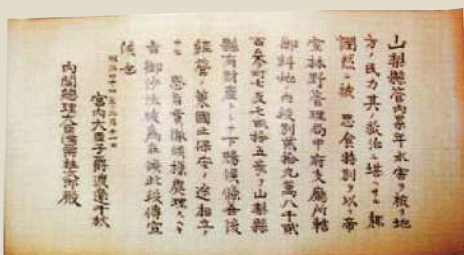 山梨縣管内累年水害ヲ被リ地
方ノ民力其ノ救治ニ堪ヘサル趣
憫然ニ被 思食特別ヲ以テ帝
室林野管理局甲府支廳所轄
御料地ノ内段別貳拾九萬八千貳
百参町七反七畝拾五歩ヲ山梨縣
縣有財産トシテ下賜候條善後
經營ノ業國土保安ノ途相立チ
テ 恩旨貫徹候様處理スヘキ
旨御沙汰被爲在候此段傳宣
候也
明治四十四年三月十一日
宮内大臣子爵渡邊千秋
内閣總理大臣侯爵桂太郎殿